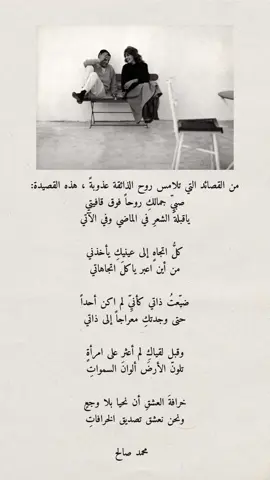 من القصائد التي تلامس روح الذائقة عذوبةً ، هذه القصيدة:
صبيّ جمالكِ روحاً فوق قافيتي
ياقبلةَ الشعرِ في الماضي وفي الآتي
كلُّ اتجاهٍ إلى عينيكِ يأخذني
من أين اعبر ياكلَّ اتجاهاتي
ضيّعتُ ذاتي كأنيّ لم اكن أحداً
حتى وجدتكِ معراجاً إلى ذاتي
وقبل لقياكِ لم أعثر على امرأةٍ
تلونُ الأرضَ ألوانَ السمواتِ
خرافةُ العشقِ أن نحيا بلا وجعٍ
ونحن نعشق تصديق الخرافاتِ
محمد صالح